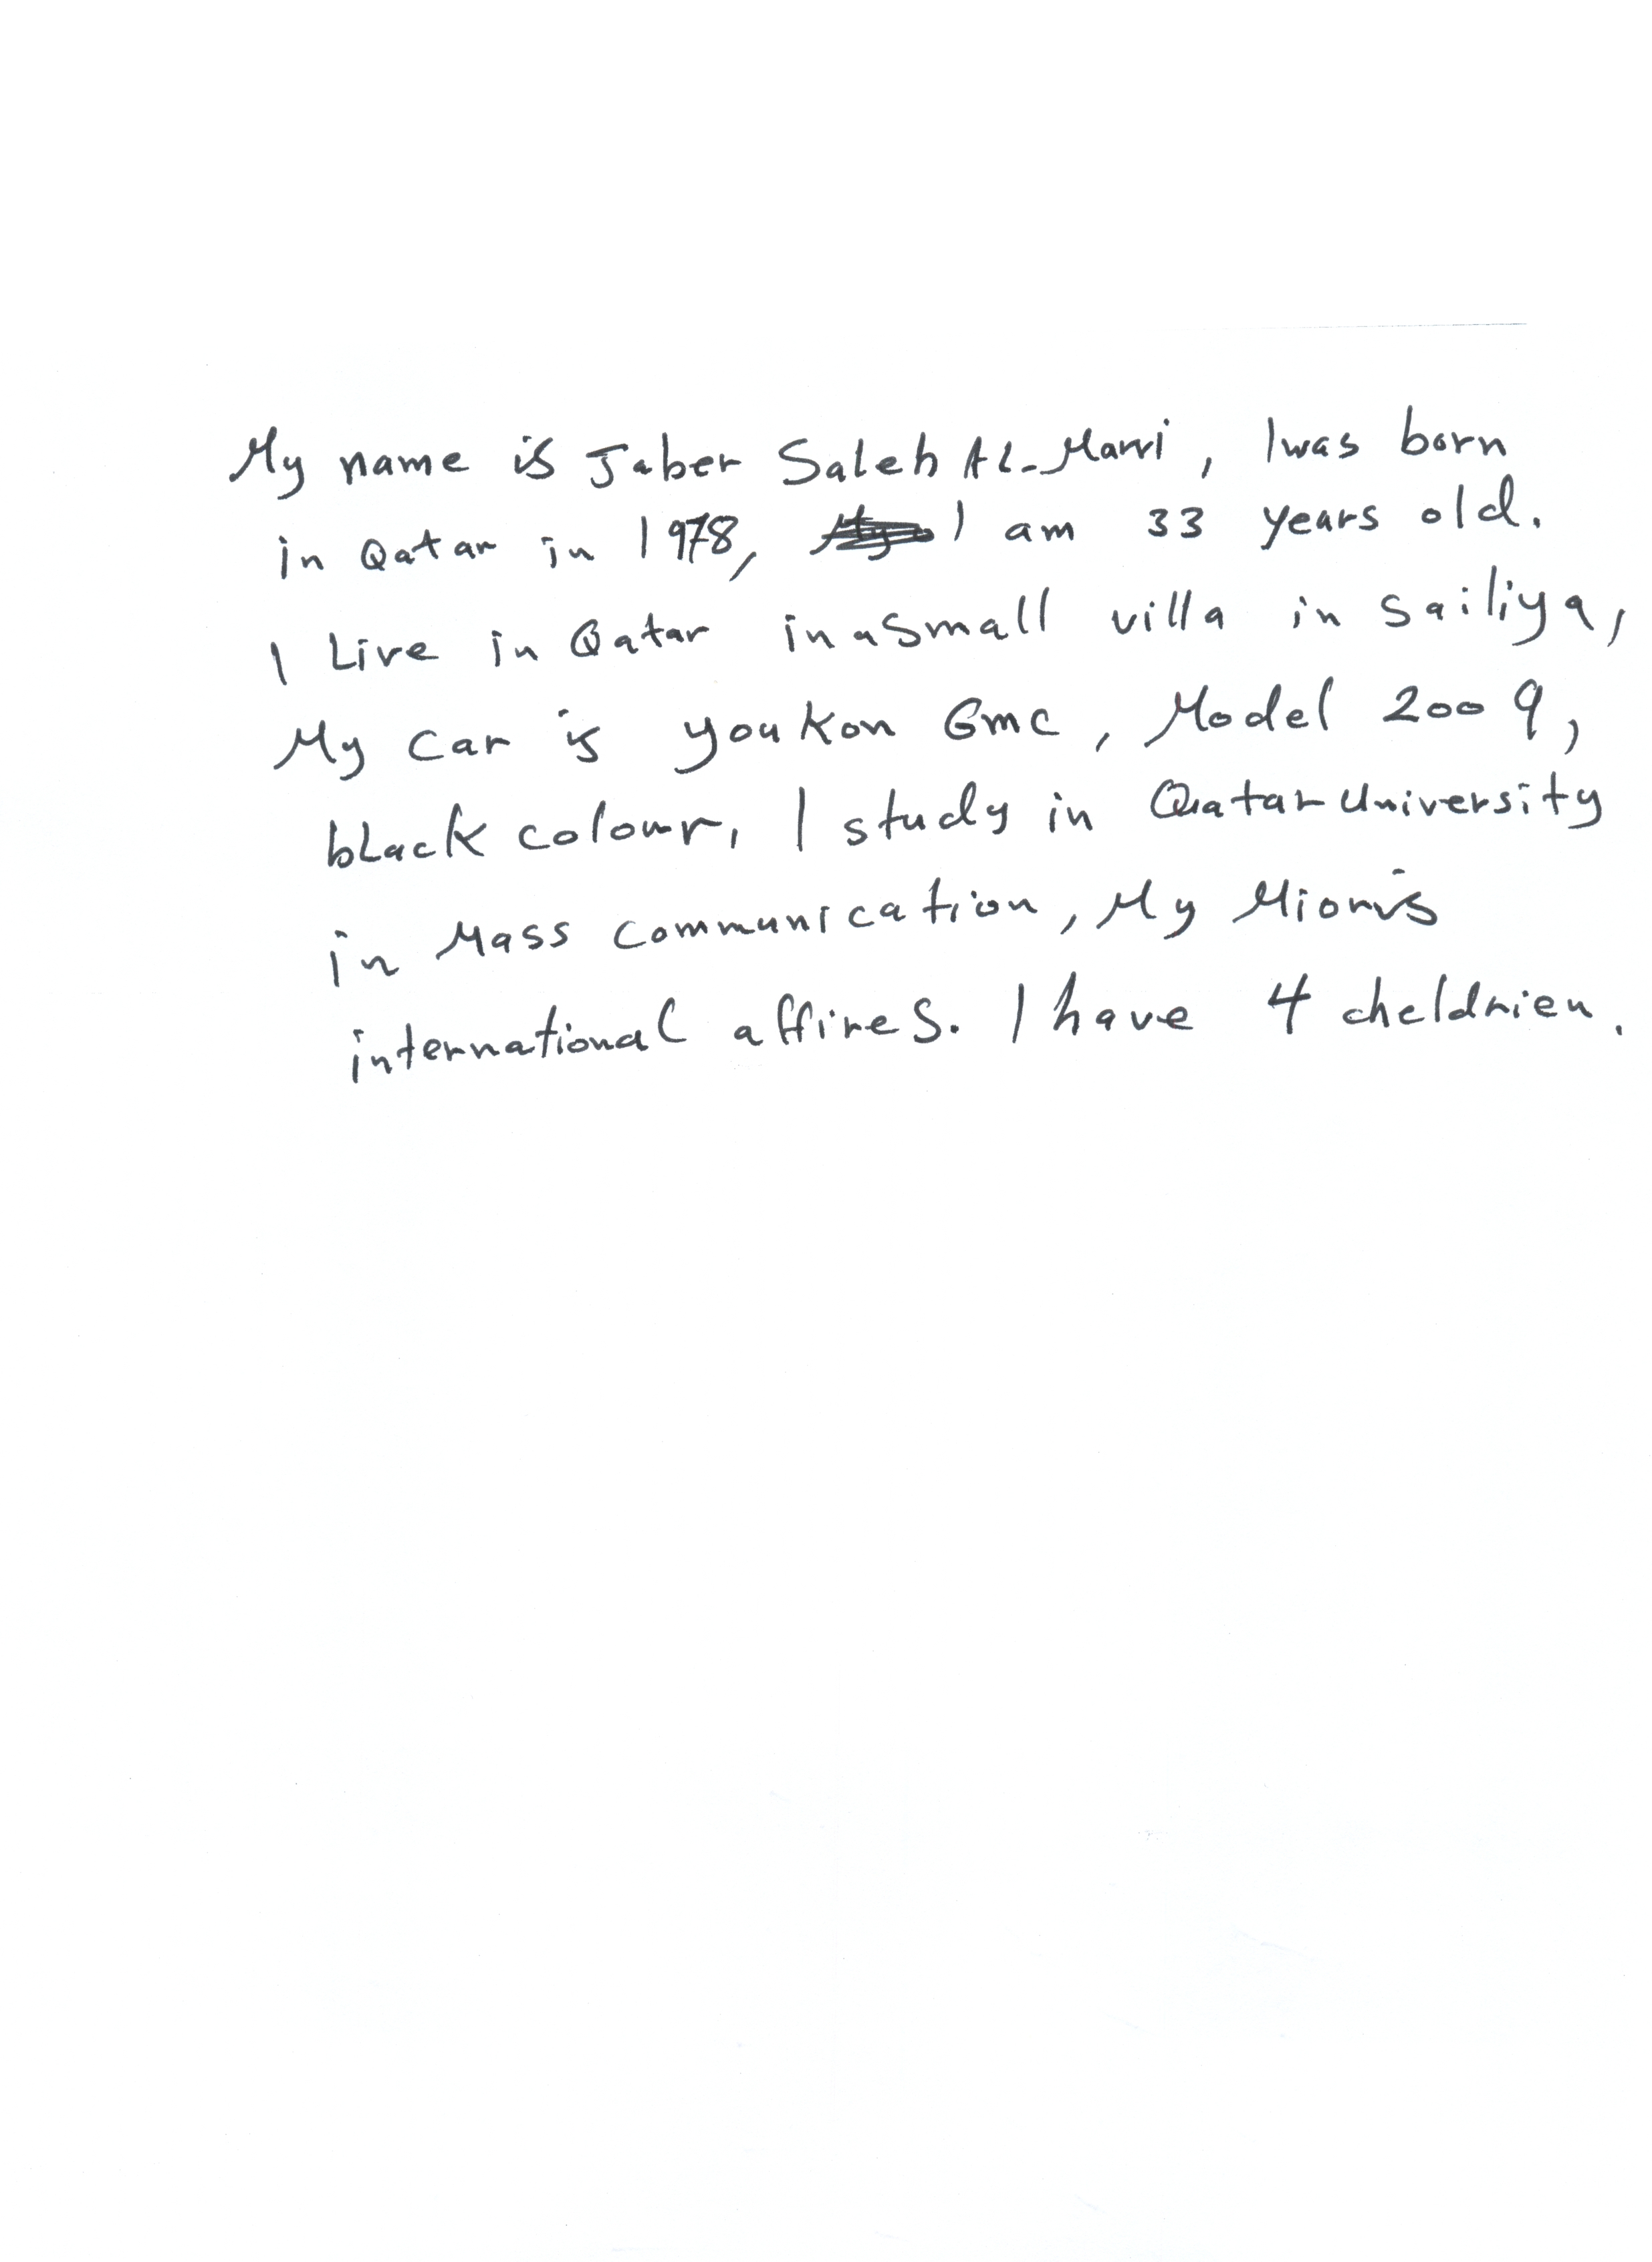 My name is Jaber Saleh AL-Marri, I was born
in Qatar in 1978, I am 33 years old.
I Live in Qatar in a small villa in Sailiya,
My car is youkon Gmc, Model 2009,
black colour, I study in Qatar University
in Mass communication, My Mior is
international affires. I have 4 cheldrien.